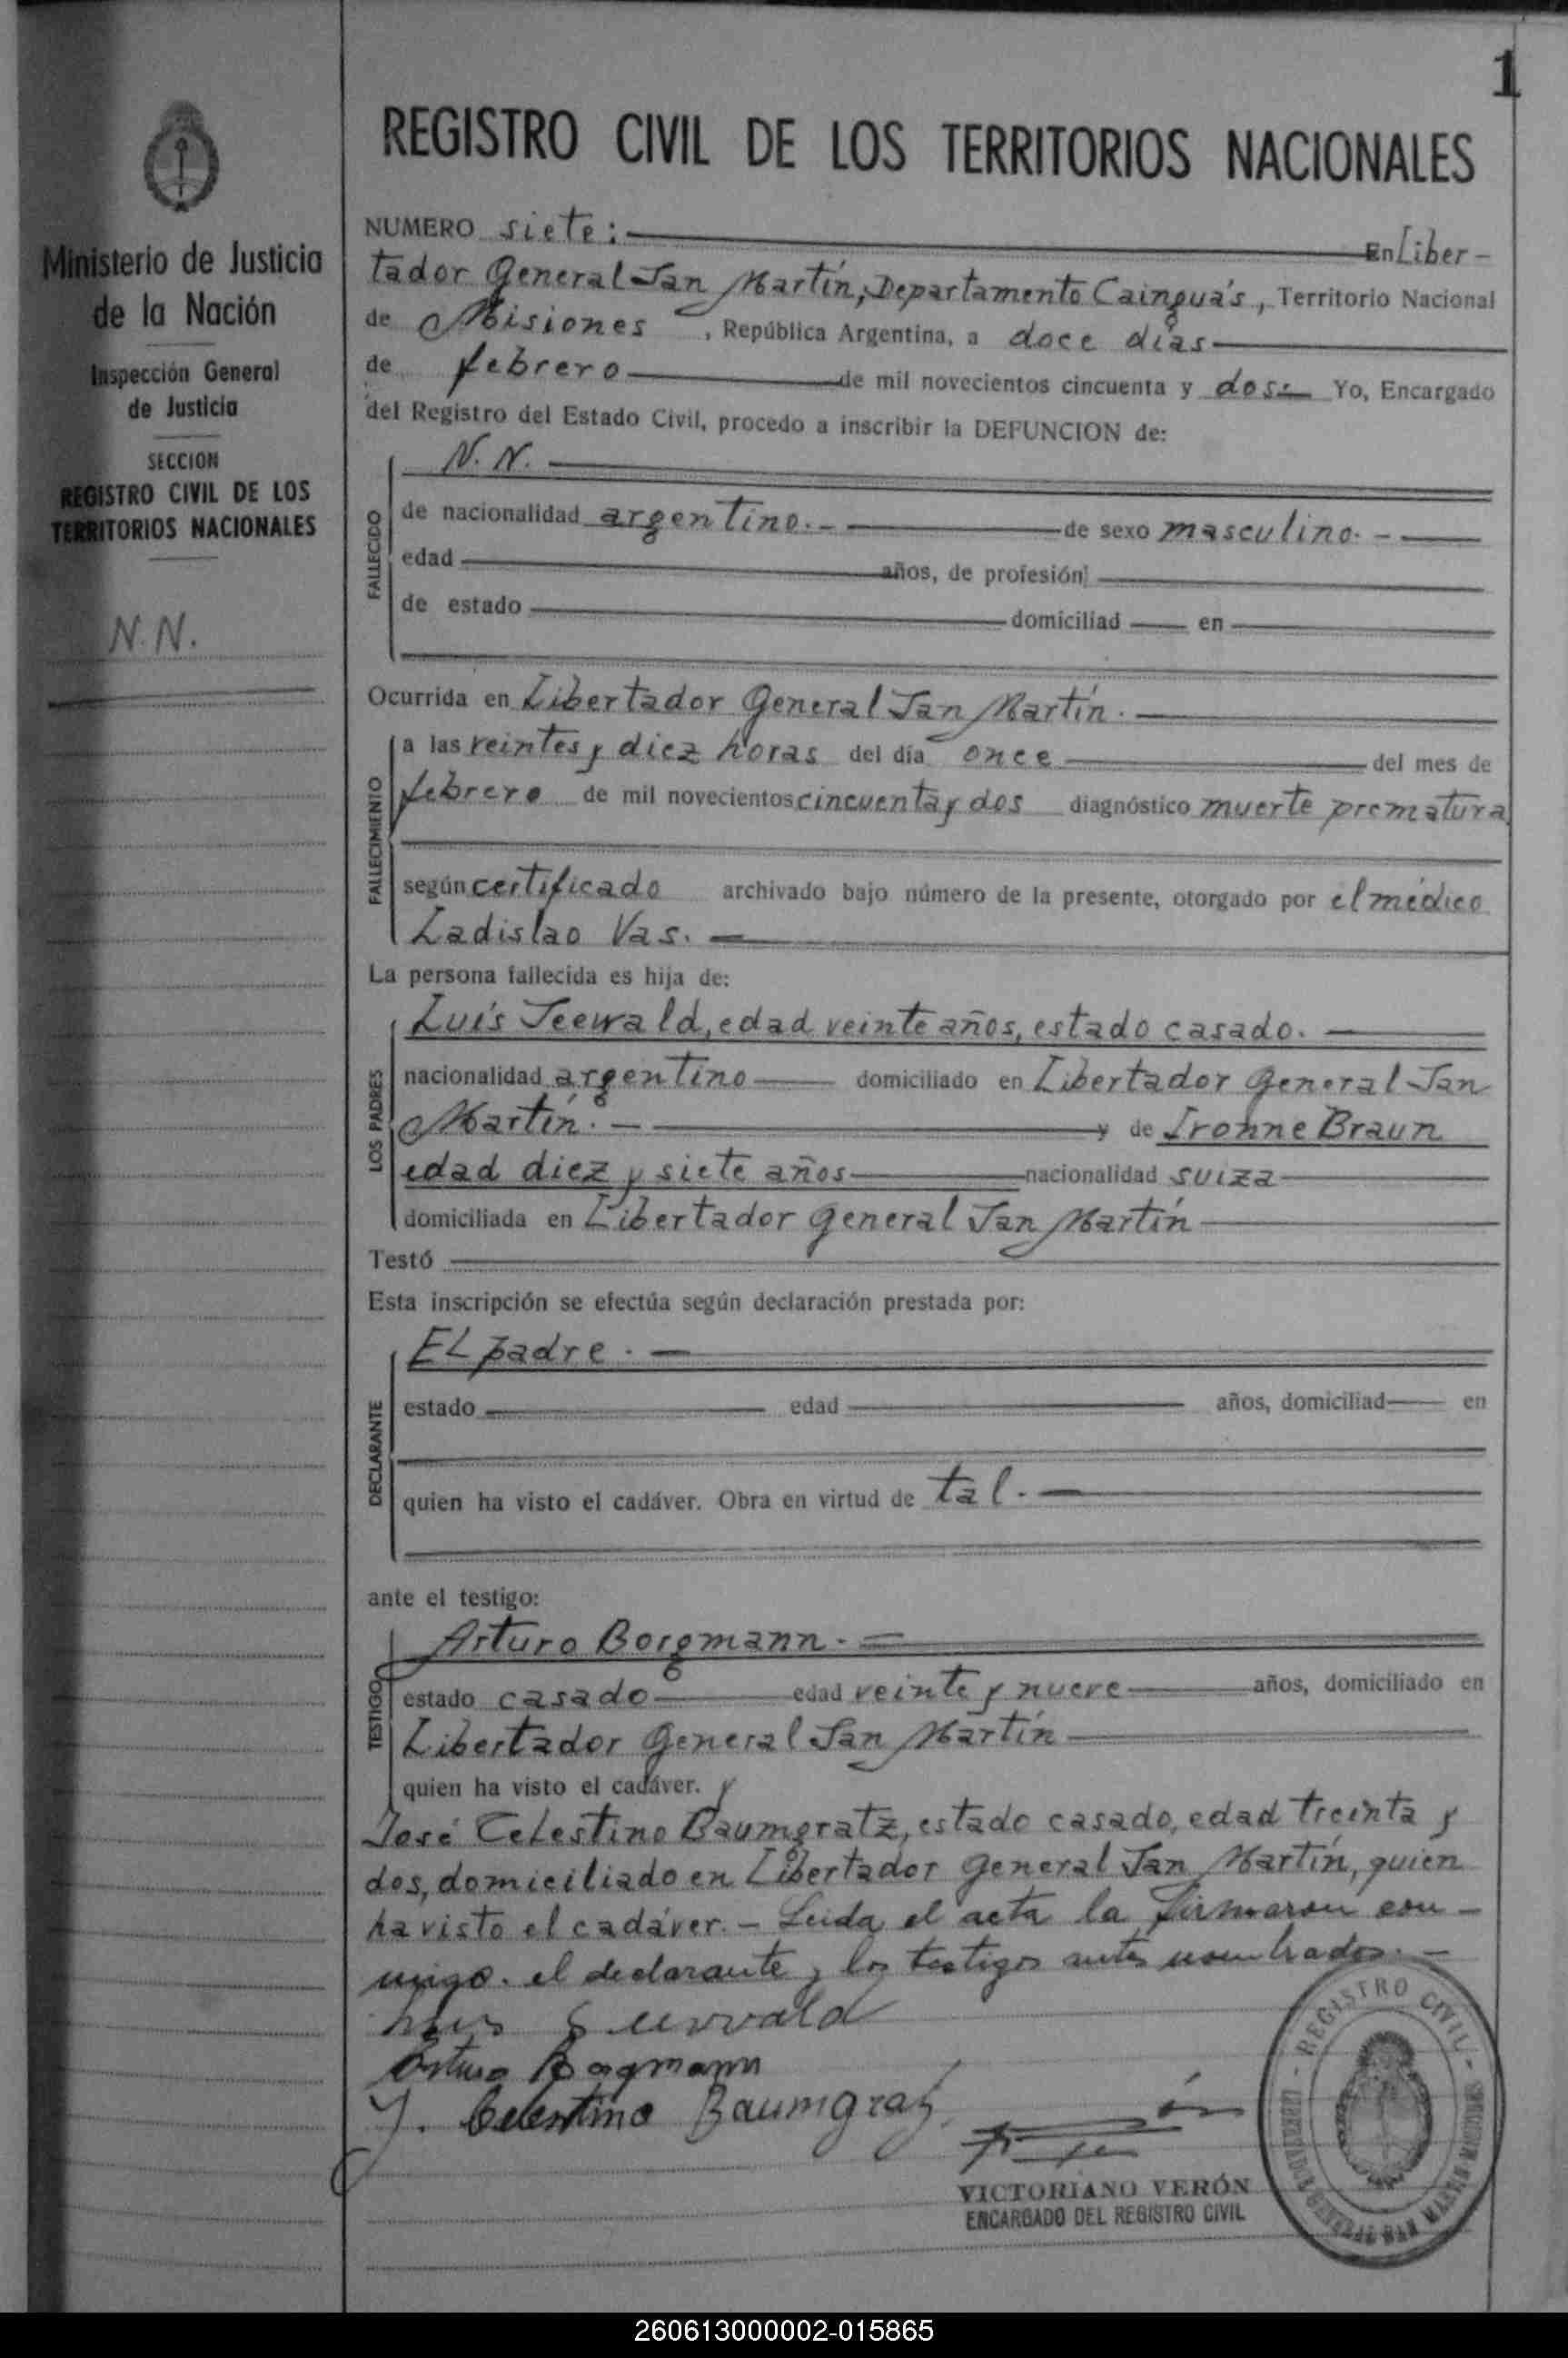 1
REGISTRO CIVIL DE LOS TERRITORIOS NACIONALES
Ministerio de Justicia
de la Nación
Inspección General
de Justicia
SECCION
REGISTRO CIVIL DE LOS
TERRITORIOS NACIONALES
N. N.
NUMERO siete: En Liber-
tador General San Martín, Departamento Cainguás, Territorio Nacional
de Misiones, República Argentina, a doce días
de febrero de mil novecientos cincuenta y dos.- Yo, Encargado
del Registro del Estado Civil, procedo a inscribir la DEFUNCION de:
N. N.
FALLECIDO
de nacionalidad argentino.- de sexo masculino.-
edad años, de profesión
de estado domiciliad en
Ocurrida en Libertador General San Martín.
FALLECIMIENTO
a las veintes y diez horas del día once del mes de
febrero de mil novecientos cincuenta y dos diagnóstico muerte prematura
según certificado archivado bajo número de la presente, otorgado por el médico
Ladislao Vas.
La persona fallecida es hija de:
LOS PADRES
Luis Seewald, edad veinte años, estado casado.
nacionalidad argentino domiciliado en Libertador General San
Martín.- y de Ivonne Braun
edad diez y siete años nacionalidad suiza
domiciliada en Libertador General San Martín
Testó
Esta inscripción se efectúa según declaración prestada por:
DECLARANTE
El padre.
estado edad años, domiciliad en
quien ha visto el cadáver. Obra en virtud de tal.
ante el testigo:
TESTIGO
Arturo Borgmann.
estado casado edad veinte y nueve años, domiciliado en
Libertador General San Martín
quien ha visto el cadáver. y
José Celestino Baumgratz, estado casado, edad treinta y
dos, domiciliado en Libertador General San Martín, quien
ha visto el cadáver.- Leida el acta la firmaron con-
migo. el declarante y los testigos antes nombrados.-
Luis Seewald
Arturo Bogmann
J. Celestino Baumgratz
VICTORIANO VERÓN
ENCARGADO DEL REGISTRO CIVIL
REGISTRO CIVIL
260613000002-015865